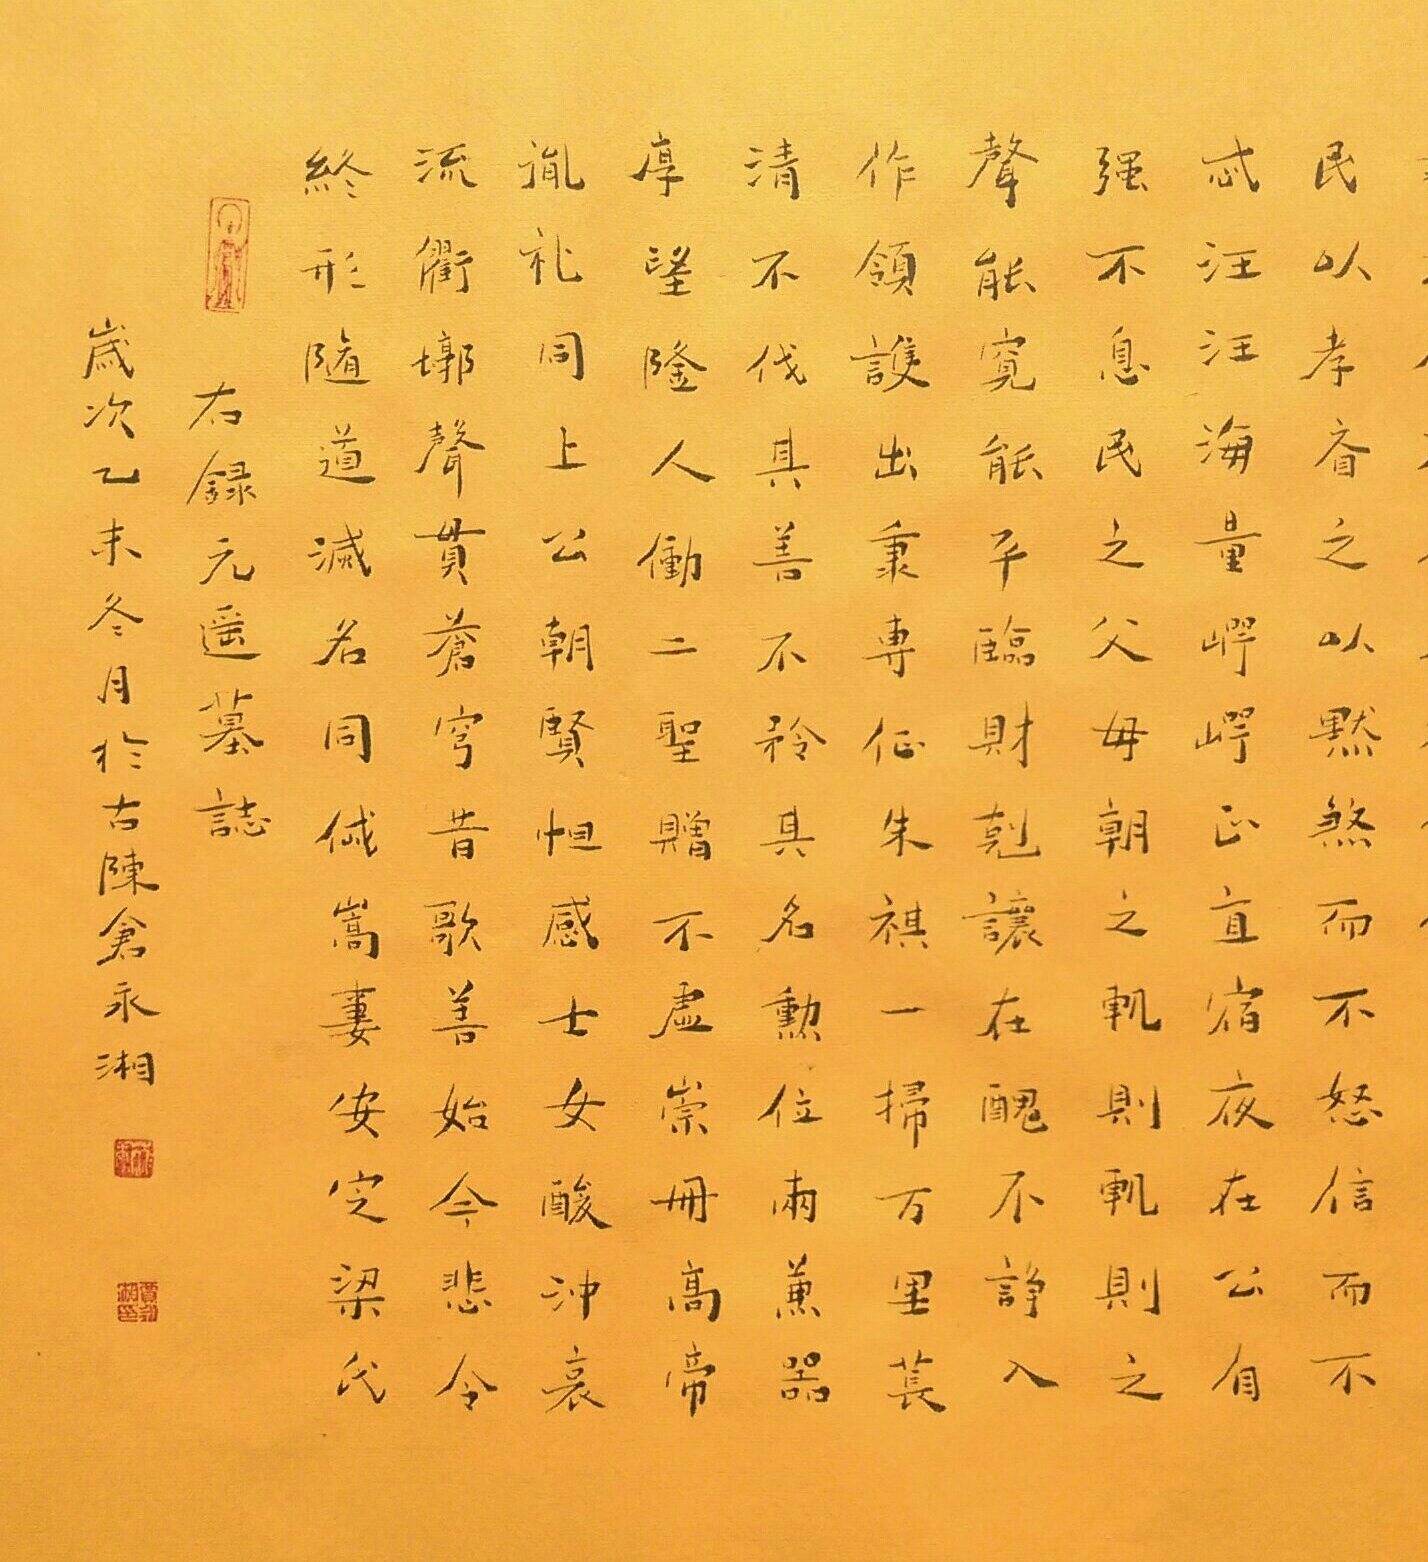 民以孝眘之以默煞而不怒信而不
忒汪汪海量崿崿正直宿夜在公自
强不息民之父毋朝之軌則軌則之
聲能寬能平臨財剋讓在醜不諍入
作領護出秉專征朱祺一掃万里萇
清不伐其善不矜其名勲位兩兼器
厚望隆人慟二聖贈不虛崇冊高帝
胤礼同上公朝賢怛感士女酸沖哀
流衢墎聲貫蒼穹昔歌善始今悲令
終形隨道滅名同㑘嵩妻安定梁氏
右録元遥墓誌
歲次乙未冬月於古陳倉永湘